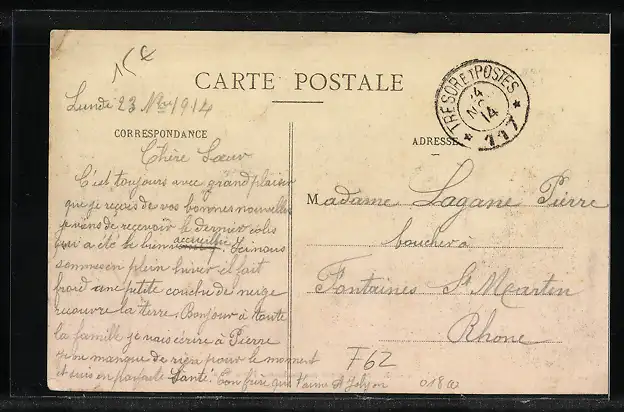 15 €
CARTE POSTALE
Lundi 23 Nbre 1914
CORRESPONDANCE
Chère Sœur
C'est toujours avec grand plaisir
que je reçois de vos bonnes nouvelles
je viens de recevoir le dernier colis
qui a été le bien accueillie. Ici nous
sommes en plein hiver il fait
froid une petite couche de neige
recouvre la terre. Bonjour à toute
la famille je vais écrire à Pierre
manque de rien pour le moment
et suis en parfaite Santé. Ton frère qui t'aime
TRESOR ET POSTES
14
* 117 *
ADRESSE
Madame Lagane Pierre
boucher à
Fontaines St Martin
Rhone
F62